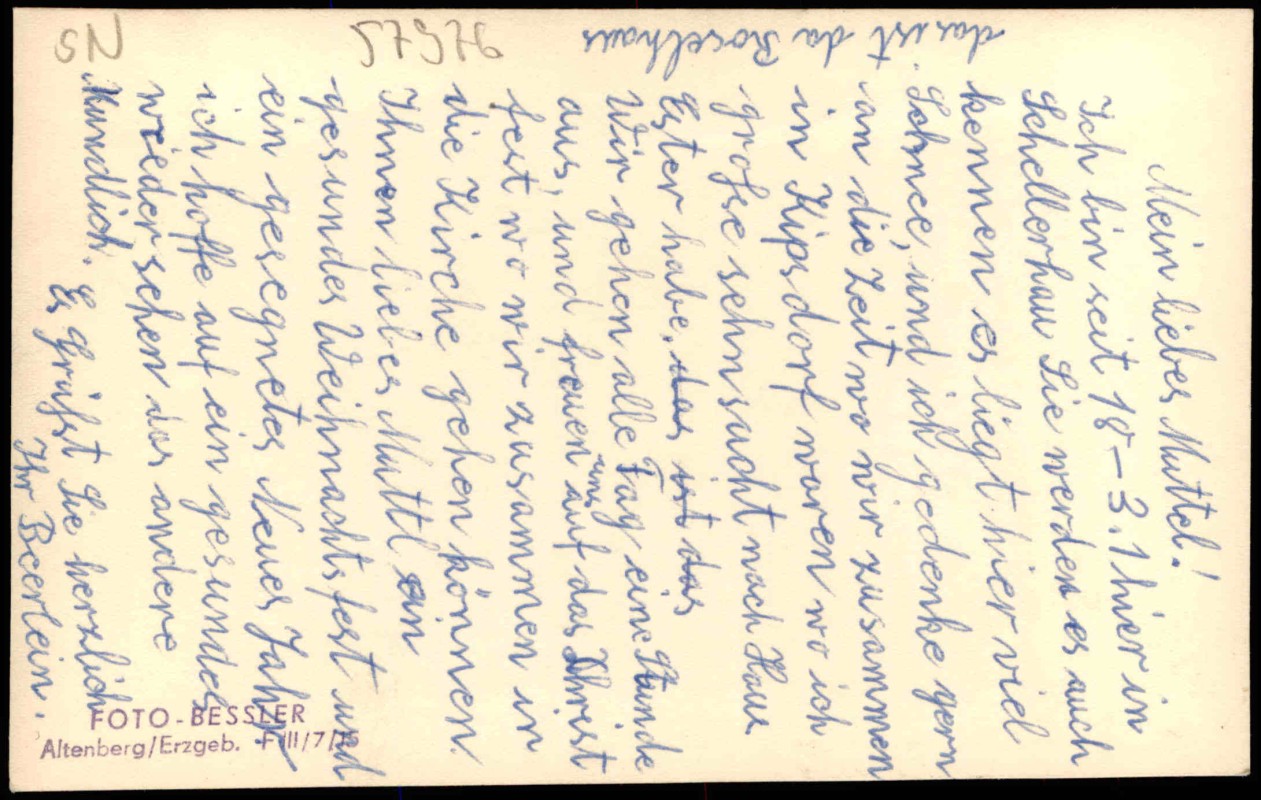 Mein liebes Muttel!
Ich bin seit 18 – 3.1 hier in
Schellerhau Sie werden es auch
kennen es liegt hier viel
Schnee, und ich gedenke gern
an die Zeit wo wir zusammen
in Kipsdorf waren wo ich
große sehnsucht nach Haus
Ester habe. das ist das
Wir gehen alle Tag eine Stunde
aus, und freuen uns auf das Christ
fest wo wir zusammen in
die Kirche gehen können.
Ihnen liebes Muttl ein
gesundes Weihnachtsfest und
ein gesegnetes Neues Jahr
ich hoffe auf ein gesundes
wiedersehen das andere
Mündlich.
Es grüßt Sie herzlich
Ihr Beerlein.
das ist da Roselhaus
57976
SN
FOTO-BESSLER
Altenberg/Erzgeb. F/II/7/15